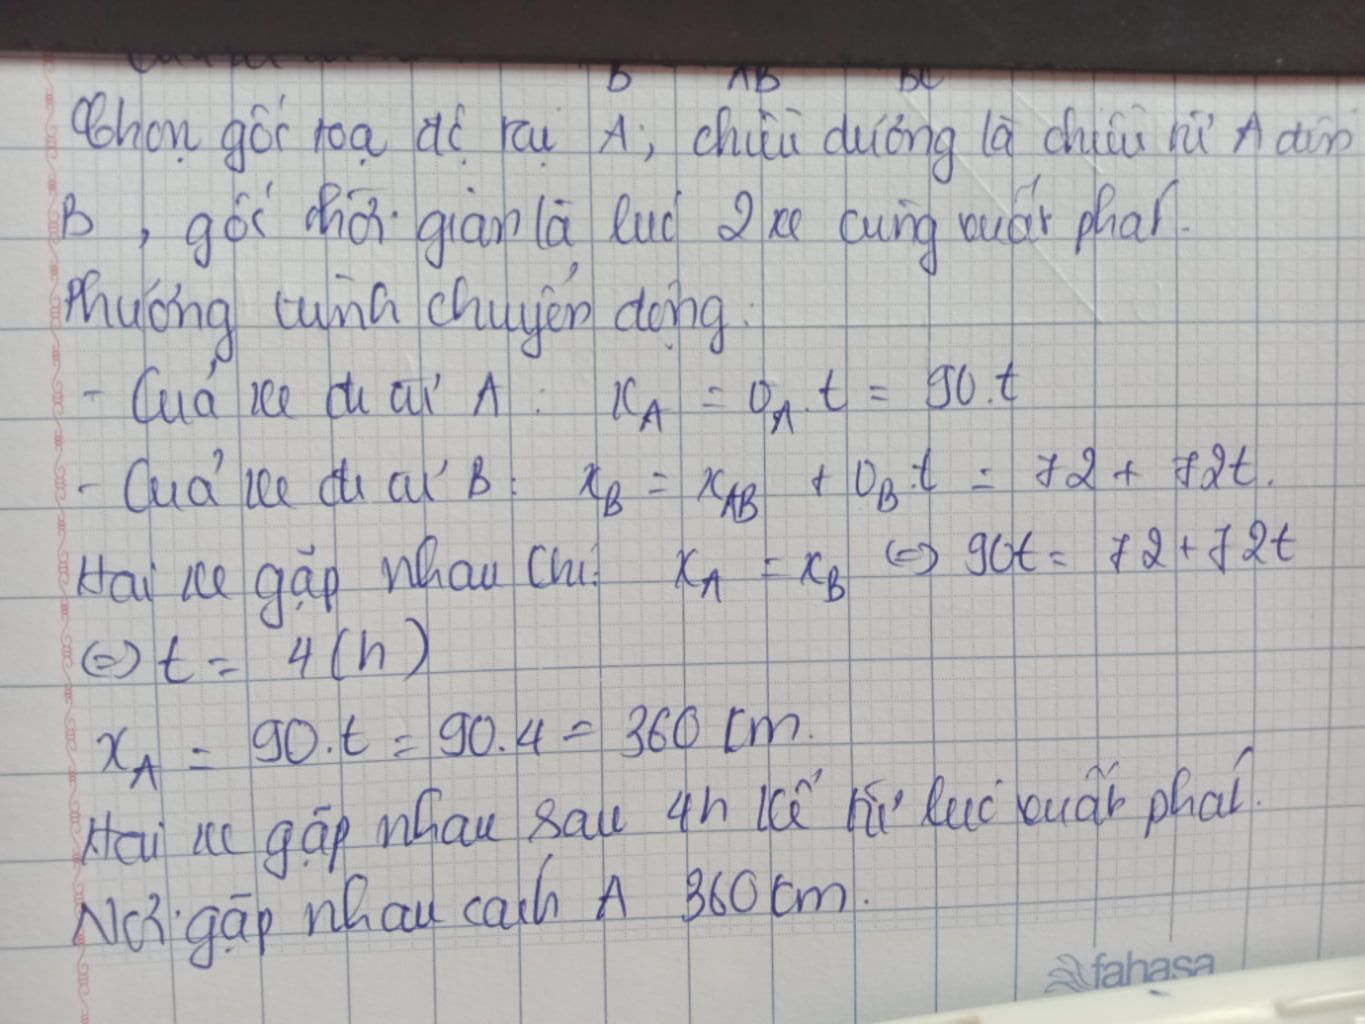 B AB BC
Chọn gốc toạ độ tại A, chiều dương là chiều từ A đến
B, gốc thời gian là lúc 2 xe cùng xuất phát.
Phương trình chuyển động:
- Của xe đi từ A: x_A = v_A.t = 90.t
- Của xe đi từ B: x_B = x_AB + v_B.t = 72 + 72t.
Hai xe gặp nhau khi: x_A = x_B <=> 90t = 72 + 72t
<=> t = 4(h)
x_A = 90.t = 90.4 = 360 km.
Hai xe gặp nhau sau 4h kể từ lúc xuất phát.
Nơi gặp nhau cách A 360 km.
fahasa